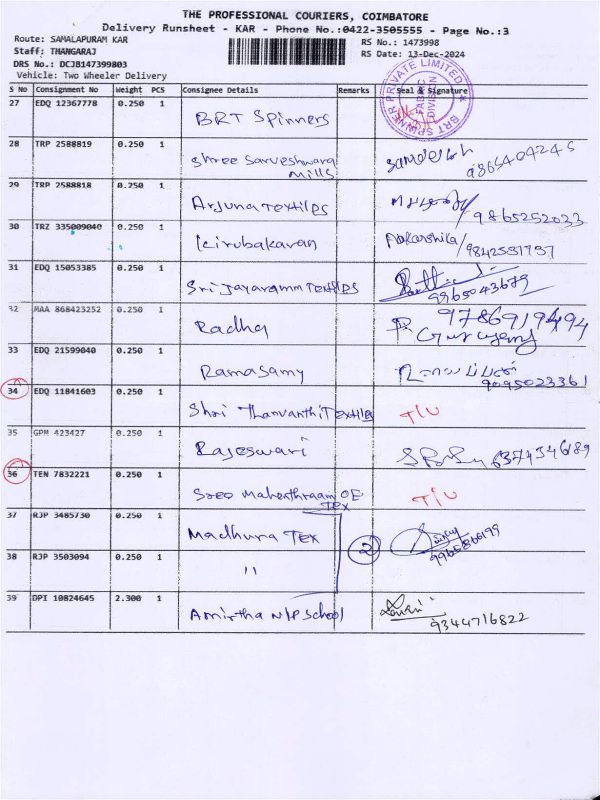 THE PROFESSIONAL COURIERS, COIMBATORE
Delivery Runsheet - KAR - Phone No.:0422-3505555 - Page No.:3
Route: SAMALAPURAM KAR
RS No.: 1473998
Staff: THANGARAJ
RS Date: 13-Dec-2024
DRS No.: DCJB147399803
Vehicle: Two Wheeler Delivery
S No Consignment No Weight PCS Consignee Details Remarks Seal & Signature
27 EDQ 12367778 0.250 1
BRT Spinners
BRT SPINNER PRIVATE LIMITED
FABRIC DIVISION
28 TRP 2588819 0.250 1
Shree Sarveshwara Mills
9865404245
29 TRP 2588818 0.250 1
Arjuna Textiles
9865252033
30 TRZ 335009040 0.250 1
Kirubakaran
9842531737
31 EDQ 15053385 0.250 1
Sri Jayaramm Textiles
9965043679
32 MAA 868423252 0.250 1
Radha
33 EDQ 21599040 0.250 1
Ramasamy
9095023361
34 EDQ 11841603 0.250 1
Shri Thanvanthi Textiles T/U
35 GPM 423427 0.250 1
Rajeswari
36 TEN 7832221 0.250 1
Sree Mahenthraam OE Tex T/U
37 RJP 3485730 0.250 1
Madhura Tex 2
38 RJP 3503094 0.250 1
"
39 DPI 10824645 2.300 1
Amirtha N/P School
9344716822